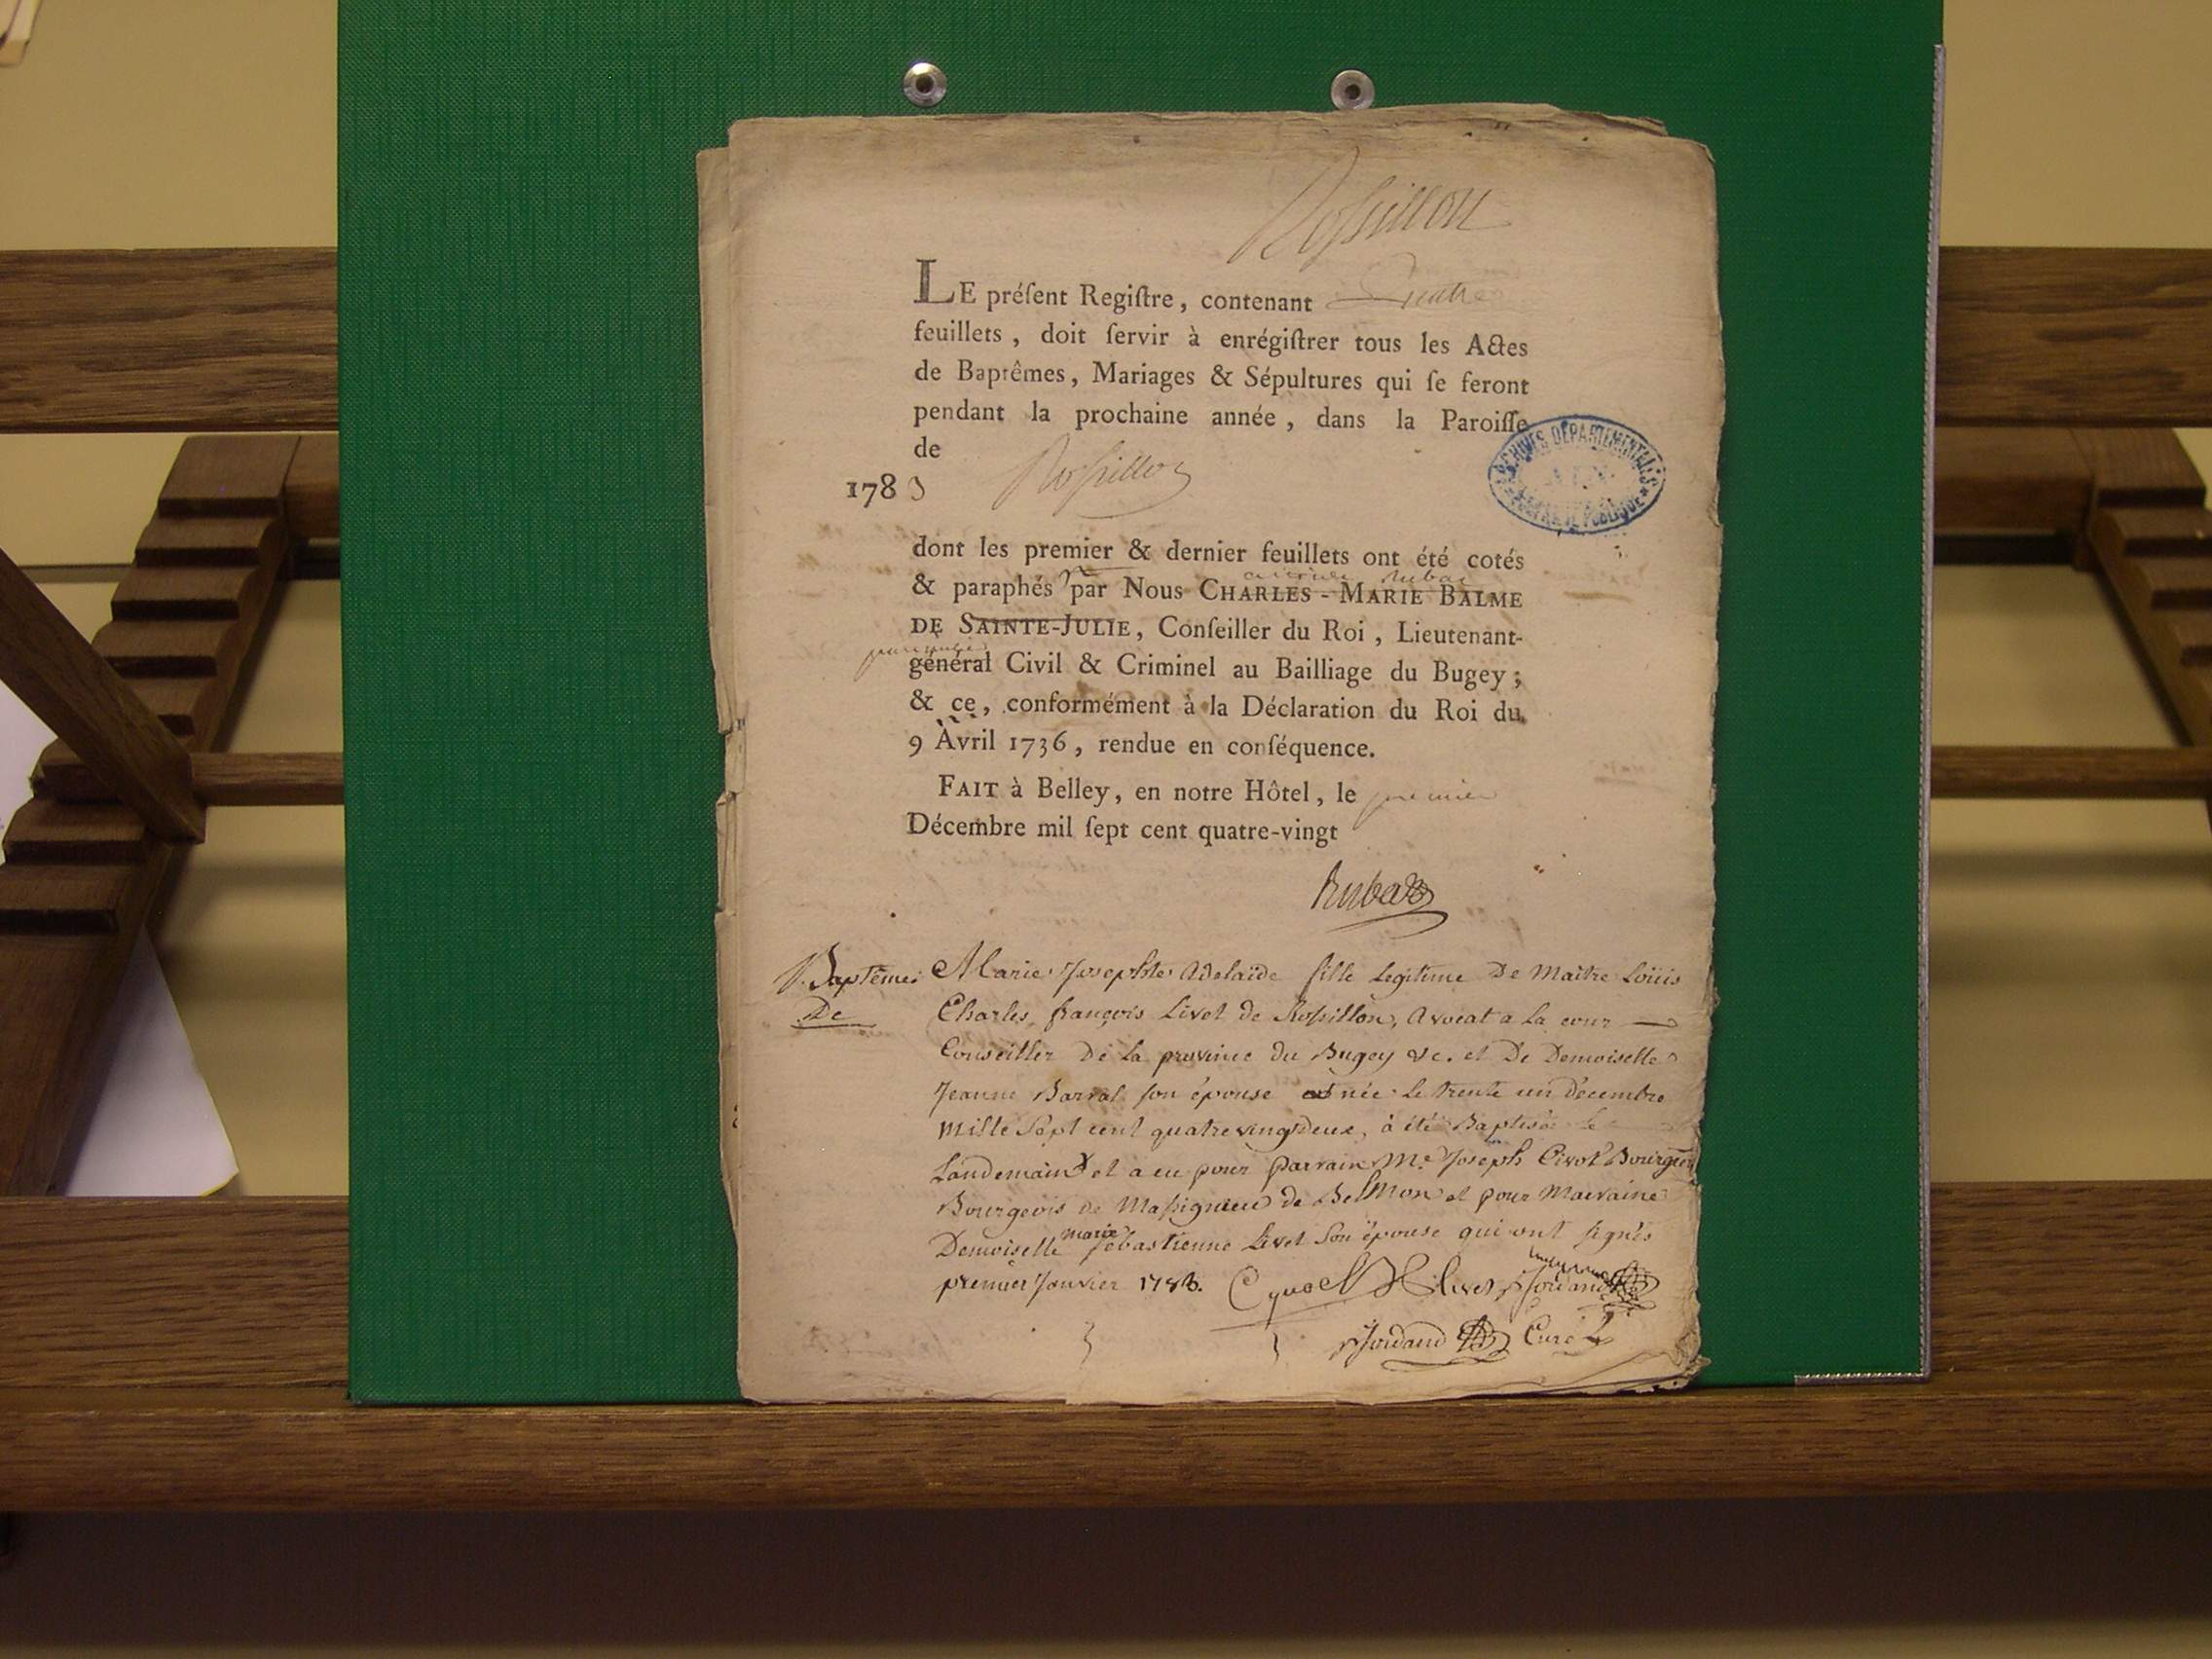 Rossillon
LE préſent Regiſtre, contenant Quatre
feuillets, doit ſervir à enrégiſtrer tous les Actes
de Baptêmes, Mariages & Sépultures qui ſe feront
pendant la prochaine année, dans la Paroiſſe
de Rossillon
1783
ARCHIVES DÉPARTEMENTALES
AIN
dont les premier & dernier feuillets ont été cotés
& paraphés par Nous CHARLES-MARIE BALME
DE SAINTE-JULIE, Conſeiller du Roi, Lieutenant-
général Civil & Criminel au Bailliage du Bugey;
& ce, conformément à la Déclaration du Roi du
9 Avril 1736, rendue en conſéquence.
FAIT à Belley, en notre Hôtel, le premier
Décembre mil ſept cent quatre-vingt
Rubat
Baptême Marie Josephte Adelaïde fille Legitime De Maitre Loüis
De Charles françois Livet de Rossillon, Avocat a la cour
Conseiller De la province du Bugey &c. et De Demoiselle
Jeanne Barral son épouse née le trente un décembre
mille Sept cent quatre vingt deux, à été Baptisée le
Landemain et a eu pour parrain Me Joseph Civot Bourgeois
Bourgeois de Massignieu de Belmon et pour Marraine
Demoiselle marie sébastienne Livet Son épouse qui ont signés
premier Janvier 1783. Livet Jordand
Jordand Curé